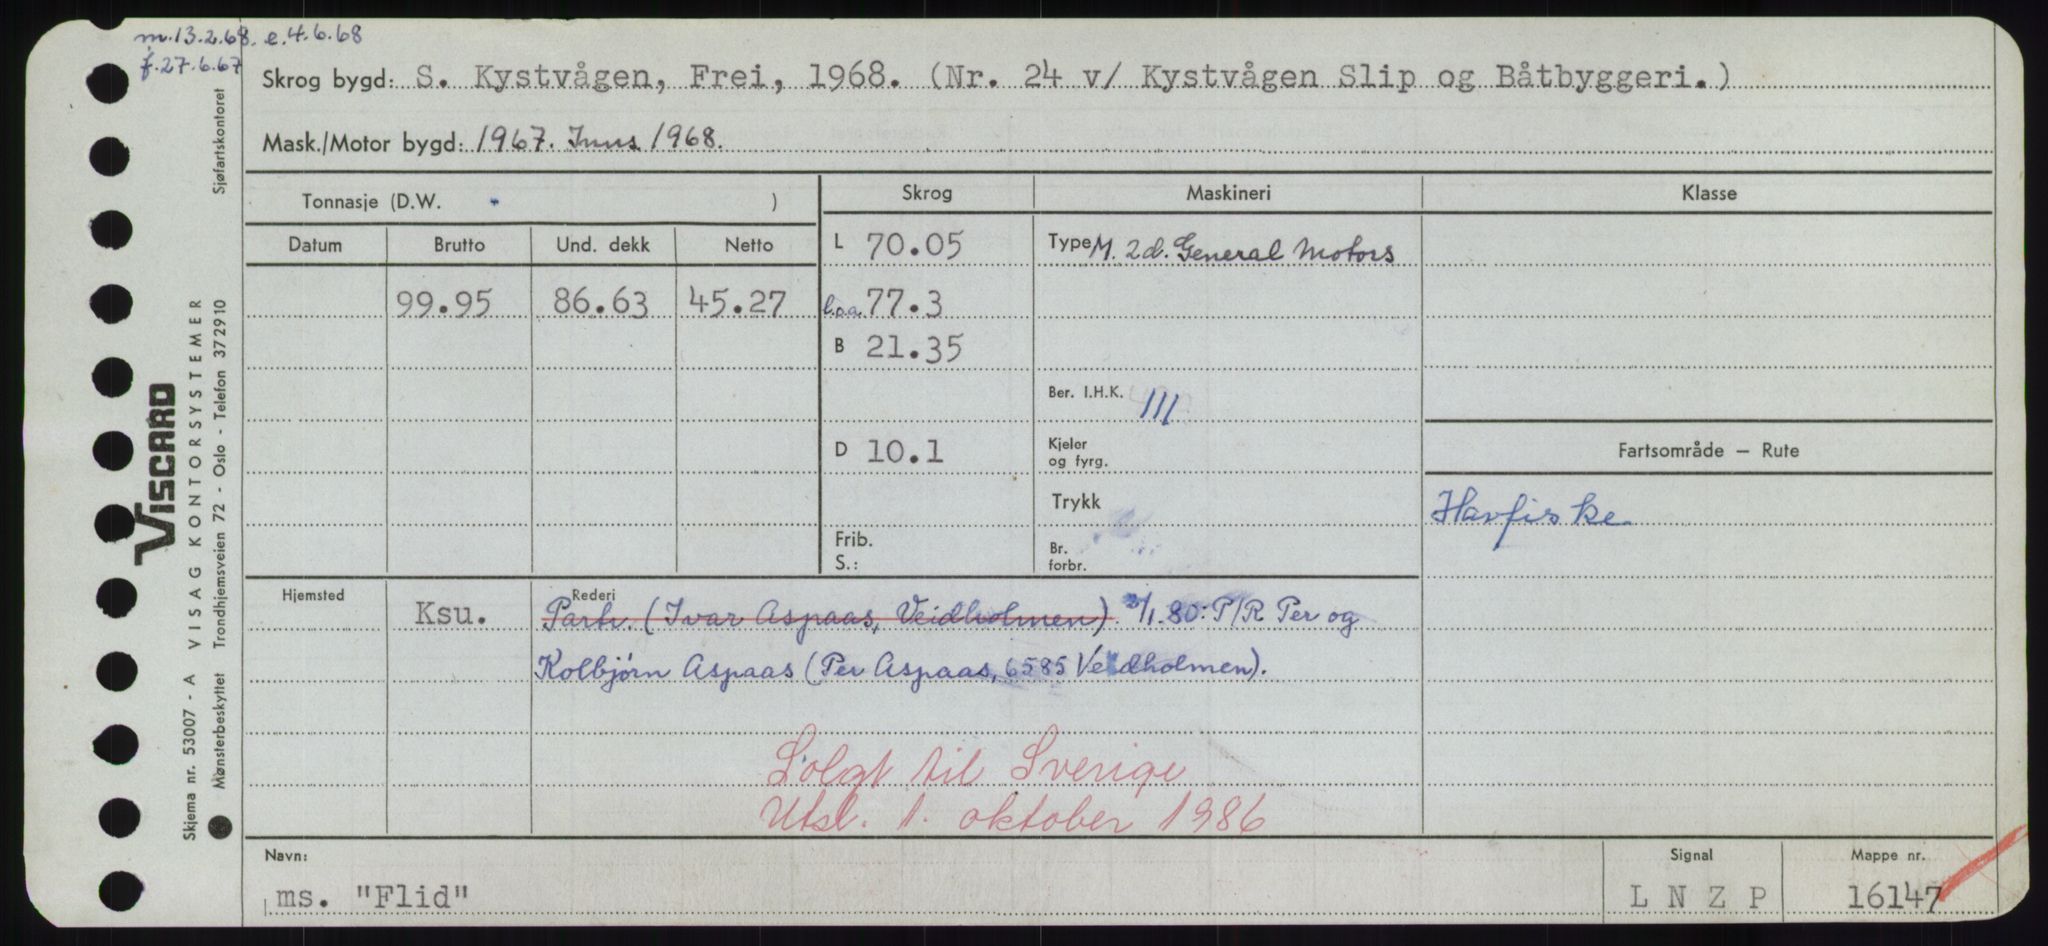 m. 13.2.68. e. 4.6.68
f. 27.6.67
Skrog bygd: S. Kystvågen, Frei, 1968. (Nr. 24 v/ Kystvågen Slip og Båtbyggeri.)
Mask./Motor bygd: 1967. Inns. 1968.
Tonnasje (D.W. )
Skrog
Maskineri
Klasse
Datum
Brutto
Und. dekk
Netto
L 70.05
Type M. 2d. General Motors
99.95
86.63
45.27
l.o.a. 77.3
B 21.35
Ber. I.H.K. 111
D 10.1
Kjeler
og fyrg.
Fartsområde — Rute
Trykk
Havfiske
Frib.
S.:
Br.
forbr.
Hjemsted
Ksu.
Rederi
Partr. (Ivar Aspaas, Veidholmen). 2/1.80: P/R Per og
Kolbjørn Aspaas (Per Aspaas, 6585 Veidholmen).
Solgt til Sverige
Utsl. 1. oktober 1986
Navn:
ms. "Flid"
Signal
LNZP
Mappe nr.
16147
Sjøfartskontoret
VISCARD
VISAG KONTORSYSTEMER
Skjema nr. 53007 - A
Mønsterbeskyttet
Trondhjemsveien 72 - Oslo - Telefon 372910